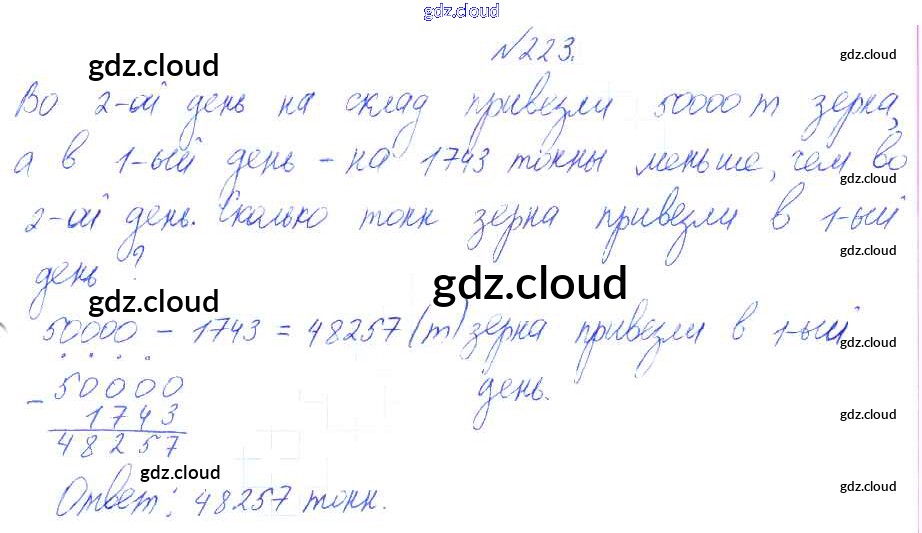 gdz.cloud
№223.
gdz.cloud
gdz.cloud
Во 2-ой день на склад привезли 50000 т зерна,
а в 1-ый день - на 1743 тонны меньше, чем во
gdz.cloud
2-ой день. Сколько тонн зерна привезли в 1-ый
gdz.cloud
день?
gdz.cloud
gdz.cloud
50000 - 1743 = 48257 (т) зерна привезли в 1-ый
gdz.cloud
день.
- 50000
1743
gdz.cloud
48257
gdz.cloud
gdz.cloud
Ответ: 48257 тонн.